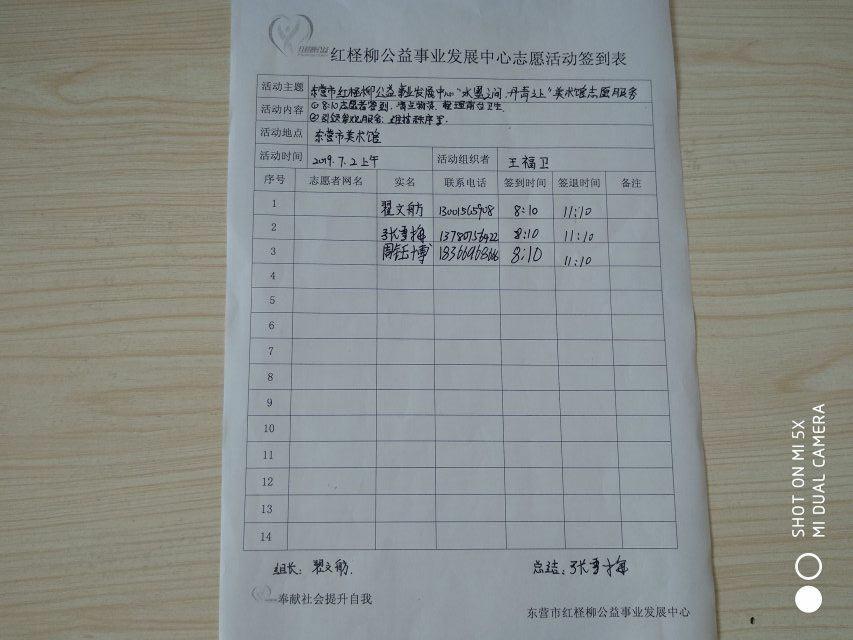 红柽柳公益事业发展中心志愿活动签到表
活动主题 东营市红柽柳公益事业发展中心"水墨之间,丹青之上"美术馆志愿服务
活动内容 ①8:10志愿者签到,清点物资,整理前台卫生.
②引领参观服务,维持秩序等.
活动地点 东营市美术馆
活动时间 2019.7.2上午 活动组织者 王福卫
序号 志愿者网名 实名 联系电话 签到时间 签退时间 备注
1 翟文舫 13001565908 8:10 11:10
2 张 梅 13780756422 8:10 11:10
3 周钰博 8:10 11:10
4
5
6
7
8
9
10
11
12
13
14
组长:翟文舫. 总结:张 梅
奉献社会提升自我
东营市红柽柳公益事业发展中心
SHOT ON MI 5X
MI DUAL CAMERA